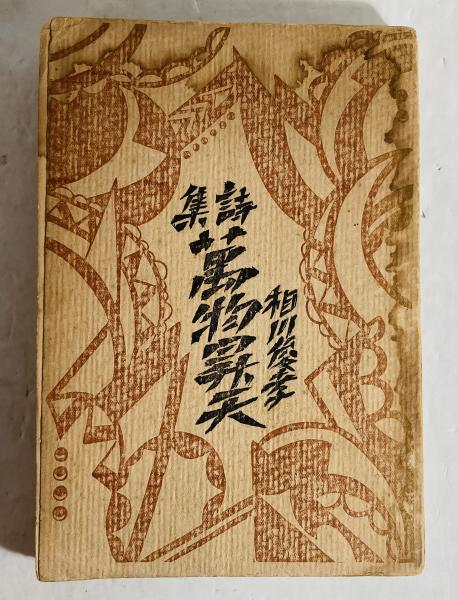 詩集
萬物昇天
相川俊孝